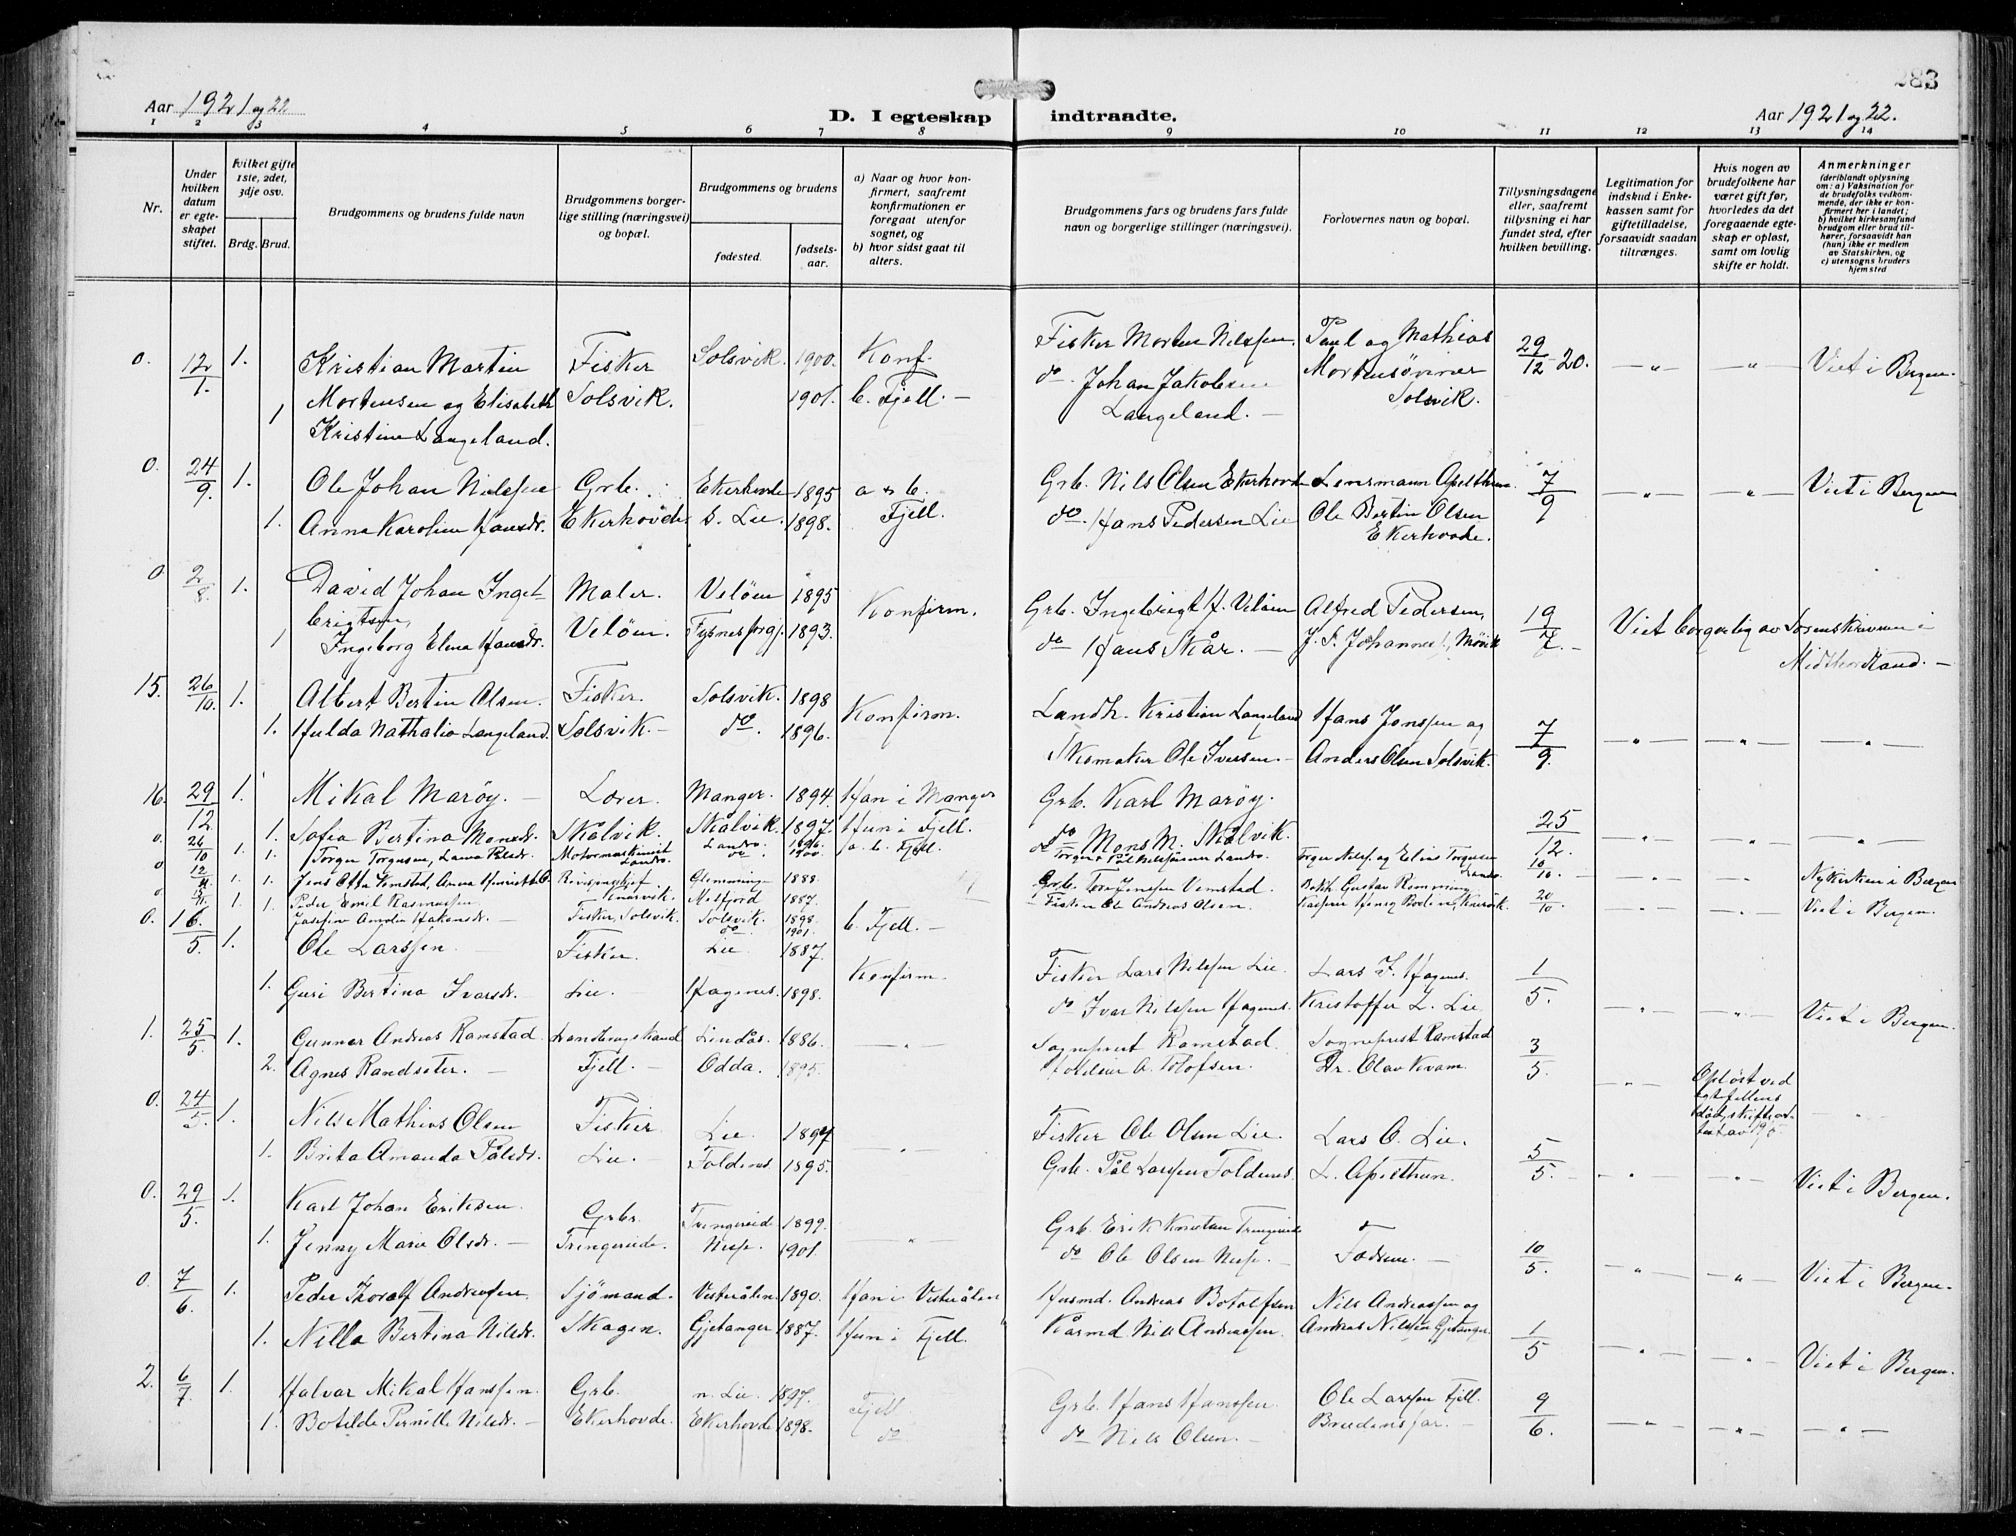 283
Aar 1921 og 22
D. I egteskap indtraadte.
Aar 1921 og 22.
1 2 3 4 5 6 7 8 9 10 11 12 13 14
Nr.
Under hvilken datum er egteskapet stiftet.
Hvilket gifte 1ste, 2det, 3dje osv.
Brdg. Brud.
Brudgommens og brudens fulde navn
Brudgommens borgerlige stilling (næringsvei) og bopæl.
Brudgommens og brudens
fødested.
fødselsaar.
a) Naar og hvor konfirmert, saafremt konfirmationen er foregaat utenfor sognet, og
b) hvor sidst gaat til alters.
Brudgommens fars og brudens fars fulde navn og borgerlige stillinger (næringsvei).
Forlovernes navn og bopæl.
Tillysningsdagene eller, saafremt tillysning ei har fundet sted, efter hvilken bevilling.
Legitimation for indskud i Enkekassen samt for giftetilladelse, forsaavidt saadan tiltrænges.
Hvis nogen av brudefolkene har været gift før, hvorledes da det foregaaende egteskap er opløst, samt om lovlig skifte er holdt.
Anmerkninger (deriblandt oplysning om: a) Vaksination for de brudefolks vedkommende, der ikke er konfirmert her i landet; b) hvilket kirkesamfund brudgom eller brud tilhører, forsaavidt han (hun) ikke er medlem av Statskirken, og c) utensogns bruders hjemsted
0. 12/1. 1. Kristian Martin Fisker Solsvik. 1900. Konf. Fisker Morten Nilssen Paul og Mathias 29/12-20. —"— —"— Viet i Bergen.
1 Mortensen og Elisabeth Solsvik. 1901. b. Fjell. — do. Johan Jakobsen Mortensønner
Kristine Langeland. Langeland. — Solsvik.
0. 24/9. 1. Ole Johan Nilssen Grb. Ekerhovde 1895 a + b. Grb. Nils Olsen Ekerhovde Lensmann Apelthun. 7/9 —"— —"— Viet i Bergen
1. Anna Karoline Hansdr. Ekerhovde. S. Lie. 1898. Fjell. do. Hans Pedersen Lie Ole Bertin Olsen
Ekerhovde.
0 2/8. 1. David Johan Inget- Maler. Veløen 1895 Konfirm. Grb. Ingebrigt H. Veløen Alfred Pedersen, 19/7. — Viet borgerlig av Sorenskriveren i
brigtsen,
1 Ingeborg Elena Hansdr. Veløen. 1893. do Hans Skår. — Midthordland. —
15. 26/10. 1. Albert Bertin Olsen. Fisker. Solsvik. 1898 Konfirm. Landh. Kristian Langeland Hans Jonssen og 7/9. —"— —"— —"—
1. Hulda Nathalia Langeland. Solsvik. — do. 1896. Skomaker Ole Iversen. — Anders Olsen Solsvik.
16. 29/12 1. Mikal Marøy. — Lærer. Manger. 1894. Han i Manger Grb. Karl Marøy. 25/12. —"— —"— —"—
1. Sofia Bertina Monsdr. Skålvik. Skålvik. 1897. Hun i Fjell. do Mons M. Skålvik.
0. 26/10 1. 1. Torger Torgersen, Landro. 1896. a. b. Fjell.
Landro. do 1900.
0 12/11. 1. 1. Jens Otto Vemstad, Glemming 1888. Grb. Tore Jenssen Vemstad, 10/10. Nykirken i Bergen
0 1. 1. Peder Emil Rasmussen Melfjord 1887. Fisker Ole Andreas Olsen. 20/10 Viet i Bergen.
Josefin Amalia Håkonsdr. Fisker, Solsvik. Solsvik 1898.
do 1901.
0. 16./5. 1. Ole Larssen — Fisker. Lie. 1887. b. Fjell. — Fisker Lars Nilssen Lie. Lars I. Hagenes. 1/5. Viet i Bergen.
1. Guri Bertina Ivarsdr. Lie. — Hagenes. 1898. Konfirm. do Ivar Nilssen Hagenes. Kristoffer L. Lie.
1. 25/5. 1. Gunnar Andreas Ramstad Lindås. 1886. —"— Sogneprest Ramstad. Sogneprest Ramstad 3/5.
2. Agnes Randseter. — Fjell. — Odda. 1895. A. Tolofsen. Dr. Olav Kvam. Opløst ved
0. 24/5. 1. Nils Mathias Olsen Fisker Lie. 1897 —"— Fisker Ole Olsen Lie. Lars O. Lie. 5/5. Viet i Bergen.
1. Brita Amanda Pålsdr. Lie. — Foldenes. 1895. Grb. Pål Larssen Foldenes. L. Apelthun.
0. 29/5. 1. Karl Johan Eriksen. Grbr. Tringereide 1899. —"— Grb. Erik Knutson Tringereide do 10/5. Viet i Bergen.
1. Jenny Marie Olsdr. — Tringereide. Nesse. 1901. do Ole Olsen Nesse. —
0. 7/6. 1. Peder Thoralf Andreassen Sjømand. Vesterålen 1890. Han i Vesterålen Husmd. Andreas Botolfsen Nils Andreassen og 1/5 Viet i Bergen.
1. Nilla Bertina Nilsdr. Skagen. Gjetanger 1887. Hun i Fjell. Kårmd Nils Andreassen. Andreas Nilssen Gjetanger.
2. 6/7. 1. Halvar Mikal Hanssen. Grb. n. Lie. 1897. Fjell Grb. Hans Hanssen. Ole Larssen Fjell. 9/6. —"— —"— —"—
1. Botilde Pernille Nilsdr. — Ekerhovde. Ekerhovde 1898. do do Nils Olsen. — Brudens far. —